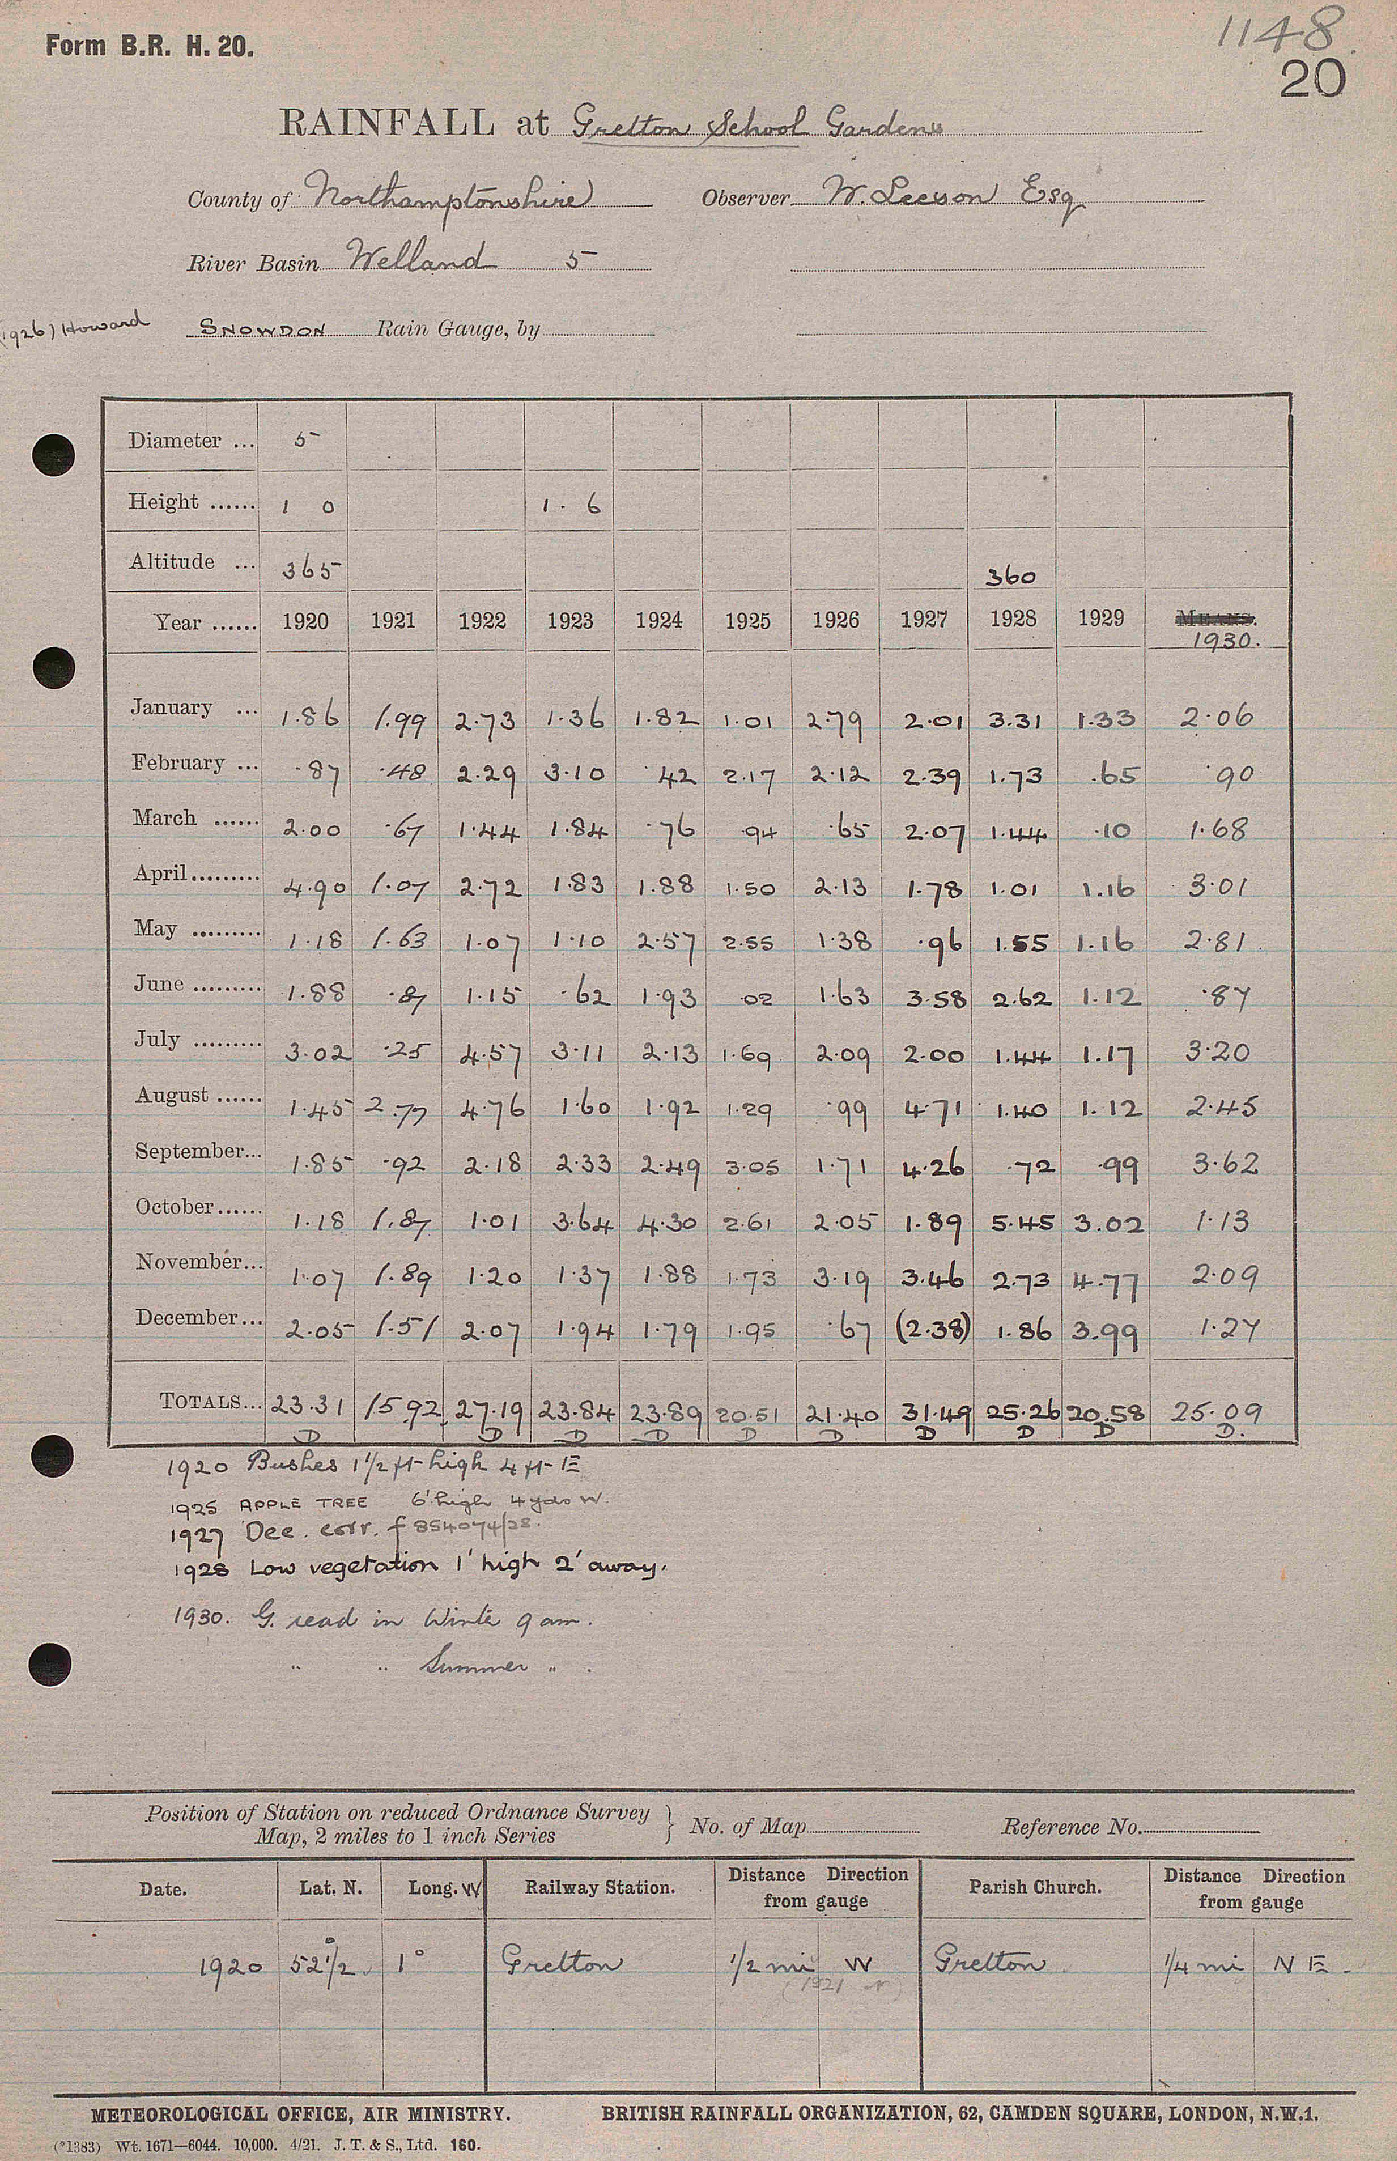 1148
Form B.R. H. 20.
20
RAINFALL at Gretton School Gardens
County of Northamptonshire Observer W. Leeson Esq
River Basin Welland 5
(1926) Howard SNOWDON Rain Gauge, by
Diameter ... 5
Height ...... 1 0 1. 6
Altitude ... 365 360
Year ...... 1920 1921 1922 1923 1924 1925 1926 1927 1928 1929 MEANS. 1930.
January ... 1.86 1.99 2.73 1.36 1.82 1.01 2.79 2.01 3.31 1.33 2.06
February ... .87 .48 2.29 3.10 .42 2.17 2.12 2.39 1.73 .65 .90
March ...... 2.00 .67 1.44 1.84 .76 .94 .65 2.07 1.44 .10 1.68
April......... 4.90 1.07 2.72 1.83 1.88 1.50 2.13 1.78 1.01 1.16 3.01
May ......... 1.18 1.63 1.07 1.10 2.57 2.55 1.38 .96 1.55 1.16 2.81
June ......... 1.88 .87 1.15 .62 1.93 .02 1.63 3.58 2.62 1.12 .87
July ......... 3.02 .25 4.57 3.11 2.13 1.69 2.09 2.00 1.44 1.17 3.20
August ...... 1.45 2.77 4.76 1.60 1.92 1.29 .99 4.71 1.40 1.12 2.45
September... 1.85 .92 2.18 2.33 2.49 3.05 1.71 4.26 .72 .99 3.62
October...... 1.18 1.87 1.01 3.64 4.30 2.61 2.05 1.89 5.45 3.02 1.13
November... 1.07 1.89 1.20 1.37 1.88 1.73 3.19 3.46 2.73 4.77 2.09
December... 2.05 1.51 2.07 1.94 1.79 1.95 .67 (2.38) 1.86 3.99 1.27
TOTALS... 23.31 15.92 27.19 23.84 23.89 20.51 21.40 31.49 25.26 20.58 25.09
D D D D D D D D D D.
1920 Bushes 1 1/2 ft high 4 ft E
1925 APPLE TREE 6' high 4 yds W.
1927 Dec. corr. f 854074/28.
1928 Low vegetation 1' high 2' away.
1930. G. read in Winter 9 am.
" " Summer " .
Position of Station on reduced Ordnance Survey
Map, 2 miles to 1 inch Series } No. of Map Reference No.
Date. Lat. N. Long. W Railway Station. Distance Direction from gauge Parish Church. Distance Direction from gauge
1920 52 1/2° 1° Gretton 1/2 mi W Gretton 1/4 mi N E.
(1921
METEOROLOGICAL OFFICE, AIR MINISTRY. BRITISH RAINFALL ORGANIZATION, 62, CAMDEN SQUARE, LONDON, N.W.1.
(*1383) Wt. 1671—6044. 10,000. 4/21. J. T. & S., Ltd. 160.